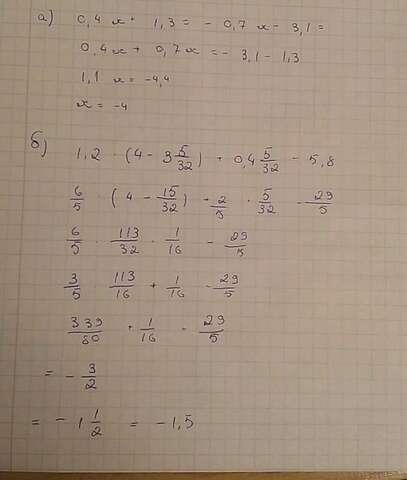 а) 0,4 x + 1,3 = - 0,7 x - 3,1 =
0,4x + 0,7x = - 3,1 - 1,3
1,1 x = -4,4
x = -4
б) 1,2 · (4 - 3 5/32) + 0,4 5/32 - 5,8
6/5 · (4 - 15/32) + 2/5 · 5/32 - 29/5
6/5 · 113/32 · 1/16 - 29/5
3/5 · 113/16 + 1/16 - 29/5
339/80 + 1/16 - 29/5
= - 3/2
= - 1 1/2 = -1,5